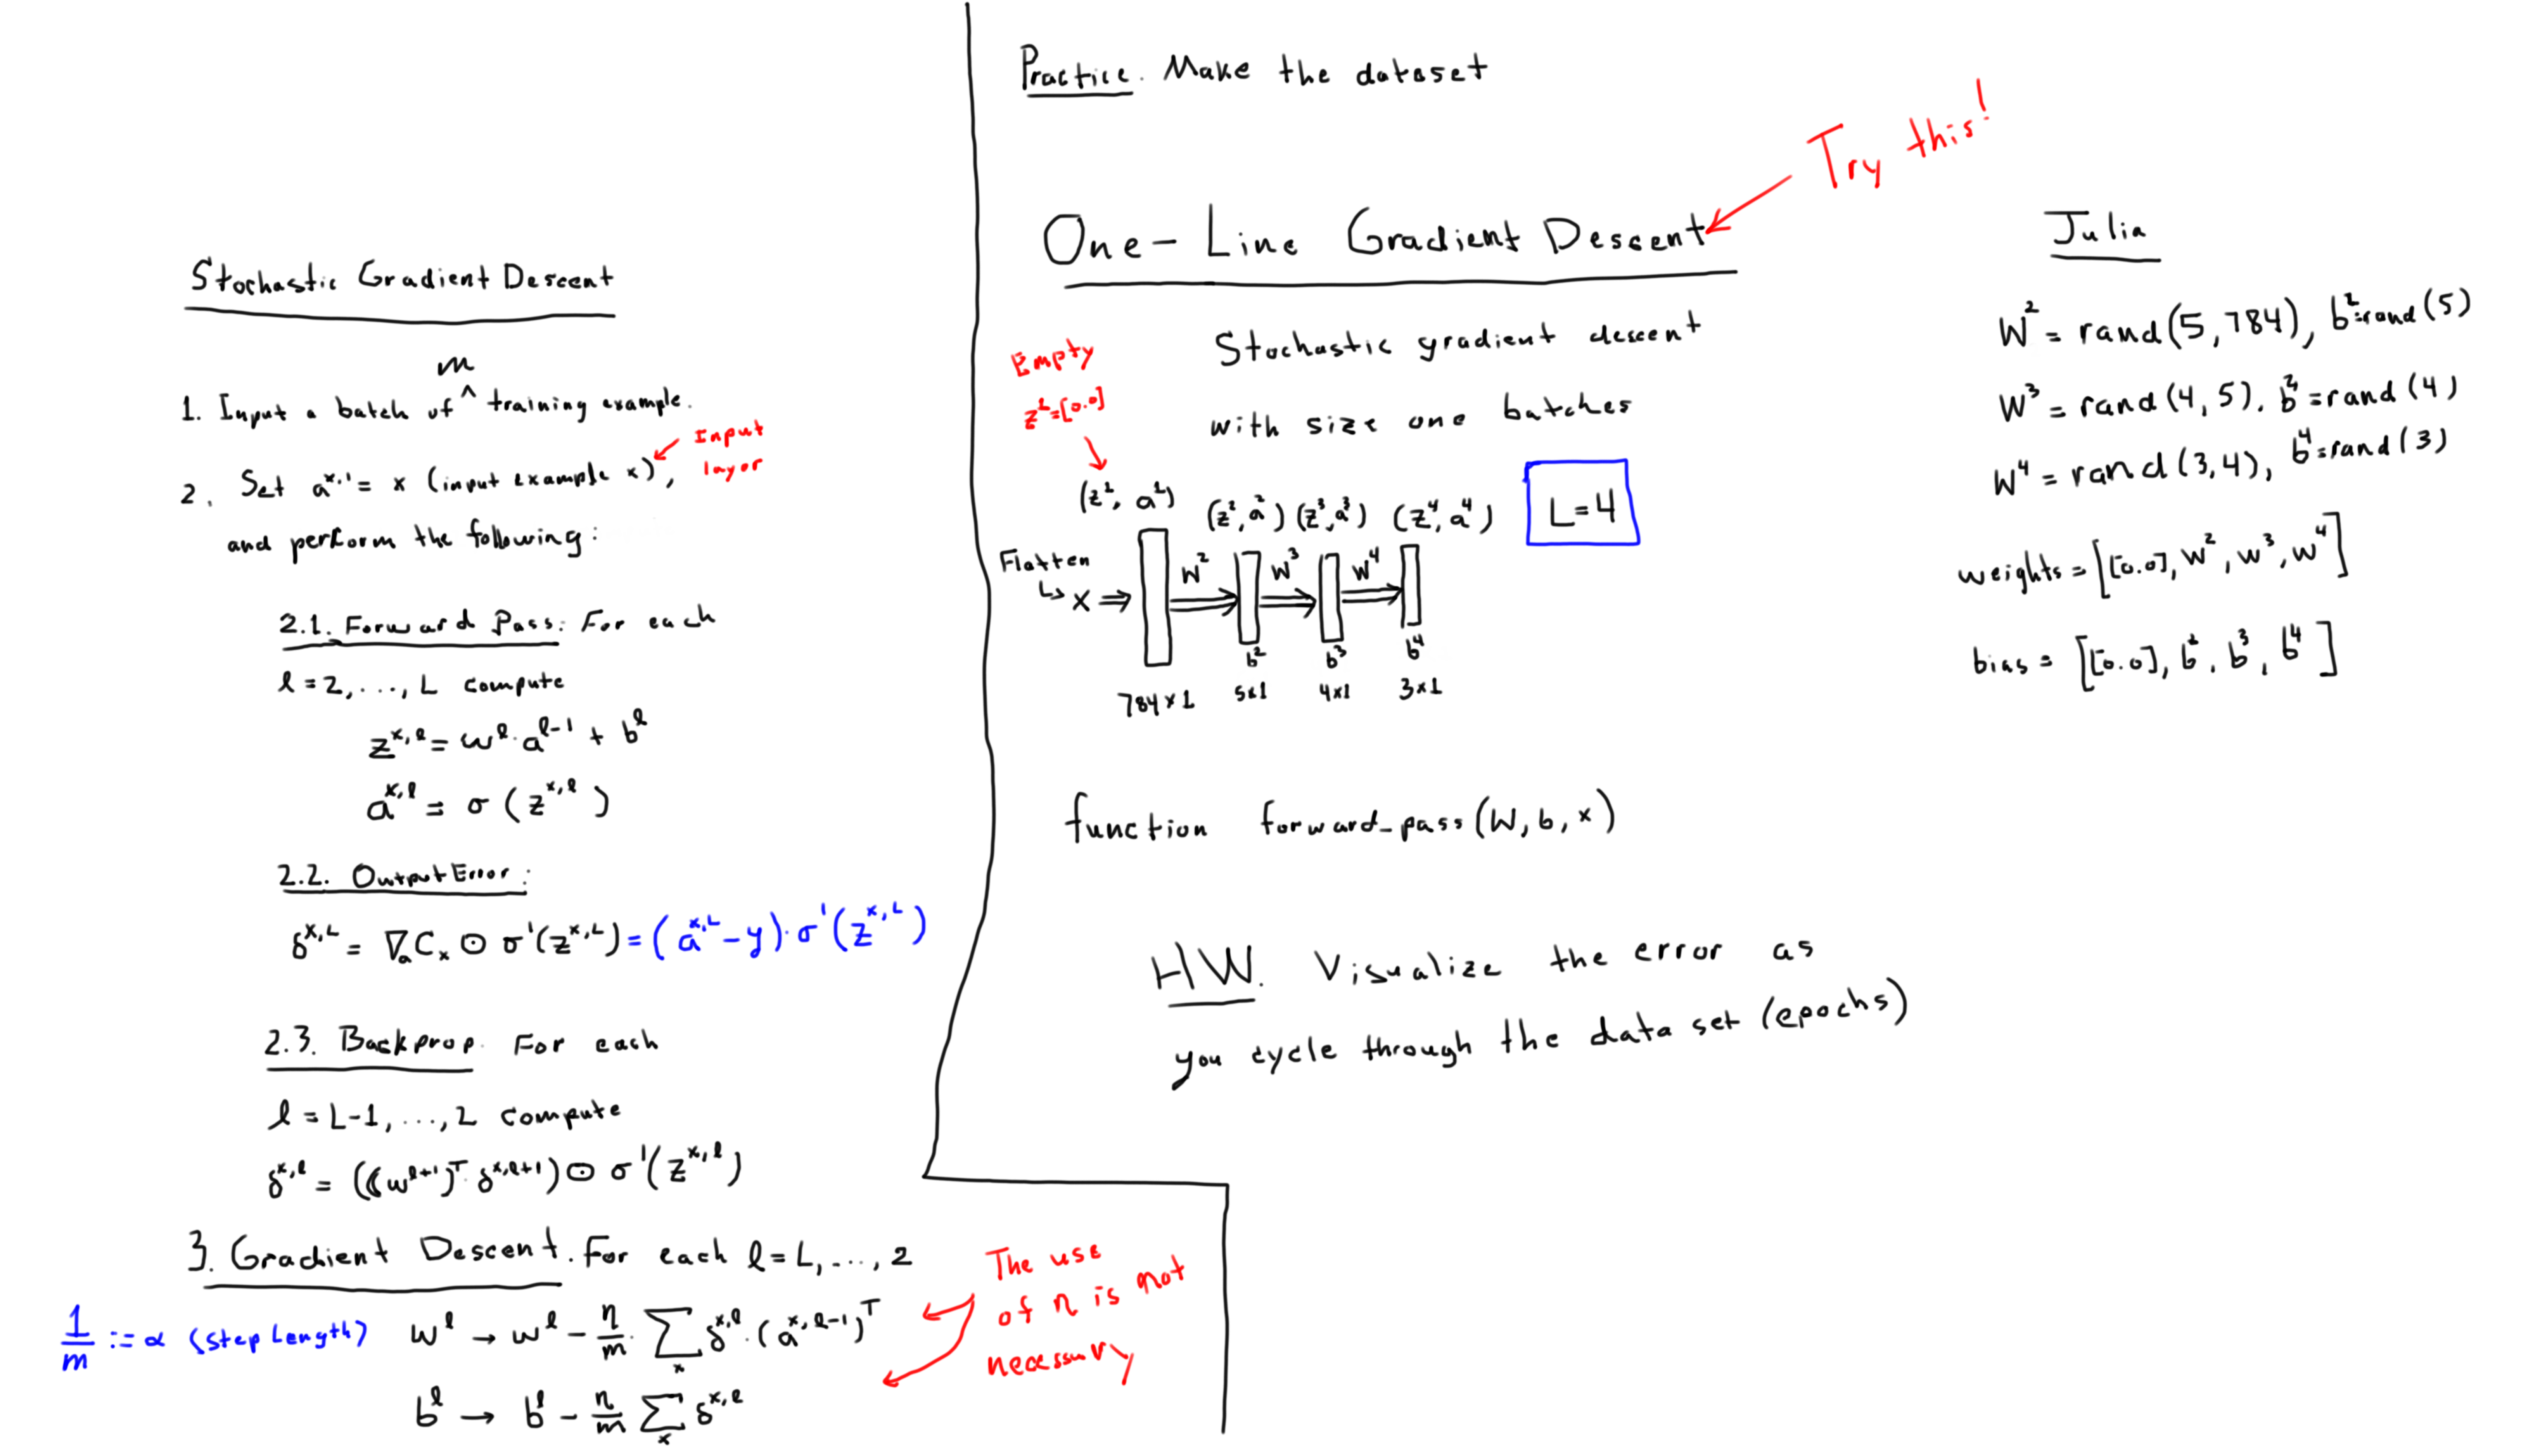 Stochastic Gradient Descent
1. Input a batch of ^ m training example.
2. Set a^{x,1} = x (input example x),
Input
layer
and perform the following:
2.1. Forward Pass: For each
l = 2, ..., L compute
z^{x,l} = w^l · a^{l-1} + b^l
a^{x,l} = σ(z^{x,l})
2.2. Output Error:
δ^{x,L} = ∇_a C_x ⊙ σ'(z^{x,L}) = (a^{x,L} - y) · σ'(z^{x,L})
2.3. Backprop. For each
l = L-1, ..., 2 compute
δ^{x,l} = ((w^{l+1})^T · δ^{x,l+1}) ⊙ σ'(z^{x,l})
3. Gradient Descent. For each l = L, ..., 2
1/m := α (step Length)
w^l → w^l - η/m · ∑_x δ^{x,l} · (a^{x,l-1})^T
b^l → b^l - η/m ∑_x δ^{x,l}
The use
of η is not
necessary
Practice. Make the dataset
Try this!
One-Line Gradient Descent
Stochastic gradient descent
with size one batches
Empty
z^1=[0.0]
(z^1, a^1) (z^2, a^2) (z^3, a^3) (z^4, a^4)
L=4
Flatten
↳ x ⇒ W^2 W^3 W^4
b^2 b^3 b^4
784x1 5x1 4x1 3x1
function forward_pass(W, b, x)
HW. Visualize the error as
you cycle through the data set (epochs)
Julia
W^2 = rand(5,784), b^2=rand(5)
W^3 = rand(4,5). b^3=rand(4)
W^4 = rand(3,4), b^4=rand(3)
weights = [[0.0], W^2, W^3, W^4]
bias = [[0.0], b^2, b^3, b^4]